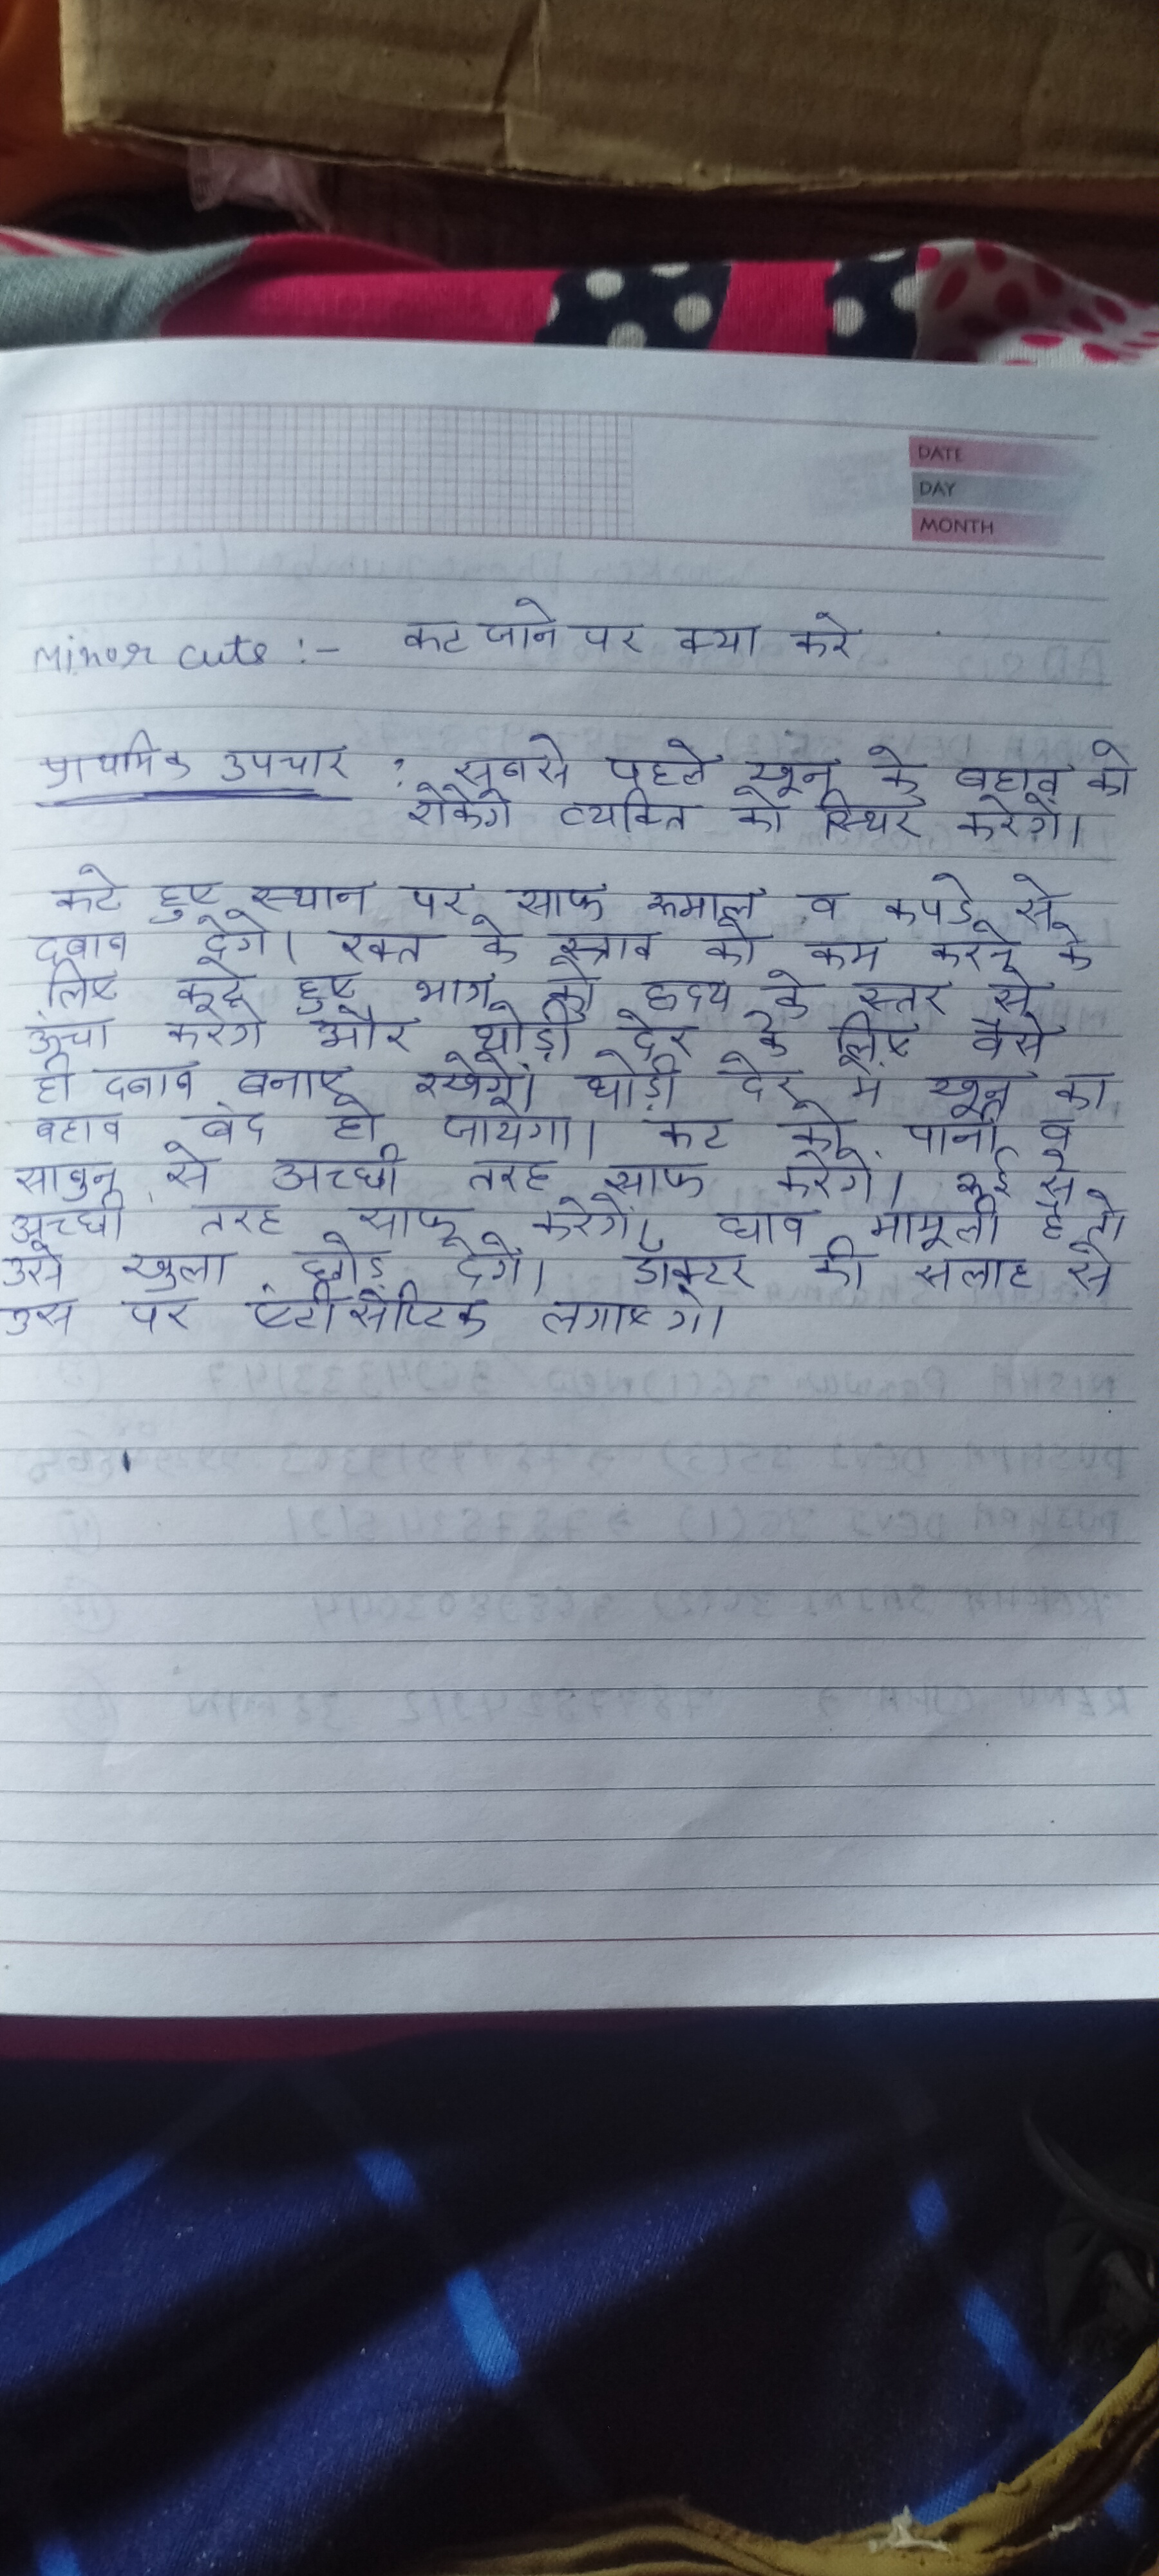 DATE
DAY
MONTH
Minor cuts :- कट जाने पर क्या करे
प्राथमिक उपचार : सबसे पहले खून के बहाव को
रोकेगे व्यक्ति को स्थिर करेगें।
कटे हुए स्थान पर साफ रुमाल व कपडे से
दबाव देगे। रक्त के स्त्राव को कम करने के
लिए कटे हुए भाग को हृदय के स्तर से
ऊंचा करेगे और थोड़ी देर के लिए वैसे
ही दबाव बनाए रखेगें। थोड़ी देर में खून का
बहाव बंद हो जायेगा। कट को पानी व
साबुन से अच्छी तरह साफ करेगे। रूई से
अच्छी तरह साफ करेगें। घाव मामूली है तो
उसे खुला छोड़ देगें। डॉक्टर की सलाह से
उस पर एंटीसेप्टिक लगाएगे।